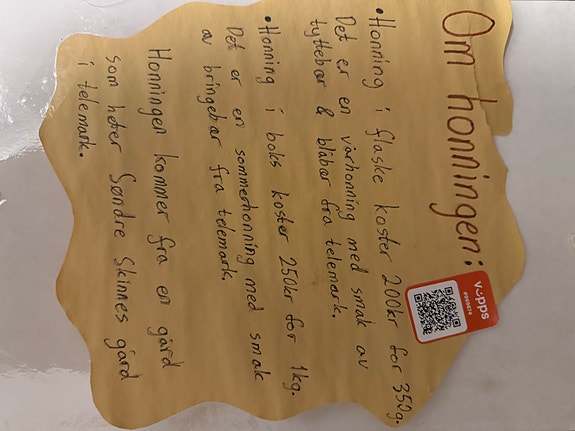 Om honningen:
• Honning i flaske koster 200kr for 350g.
Det er en vårhonning med smak av
tyttebær & blåbær fra telemark.
• Honning i boks koster 250kr for 1kg.
Det er en sommerhonning med smak
av bringebær fra telemark.
Honningen kommer fra en gård
som heter Søndre Skinnes gård
i telemark.
vipps